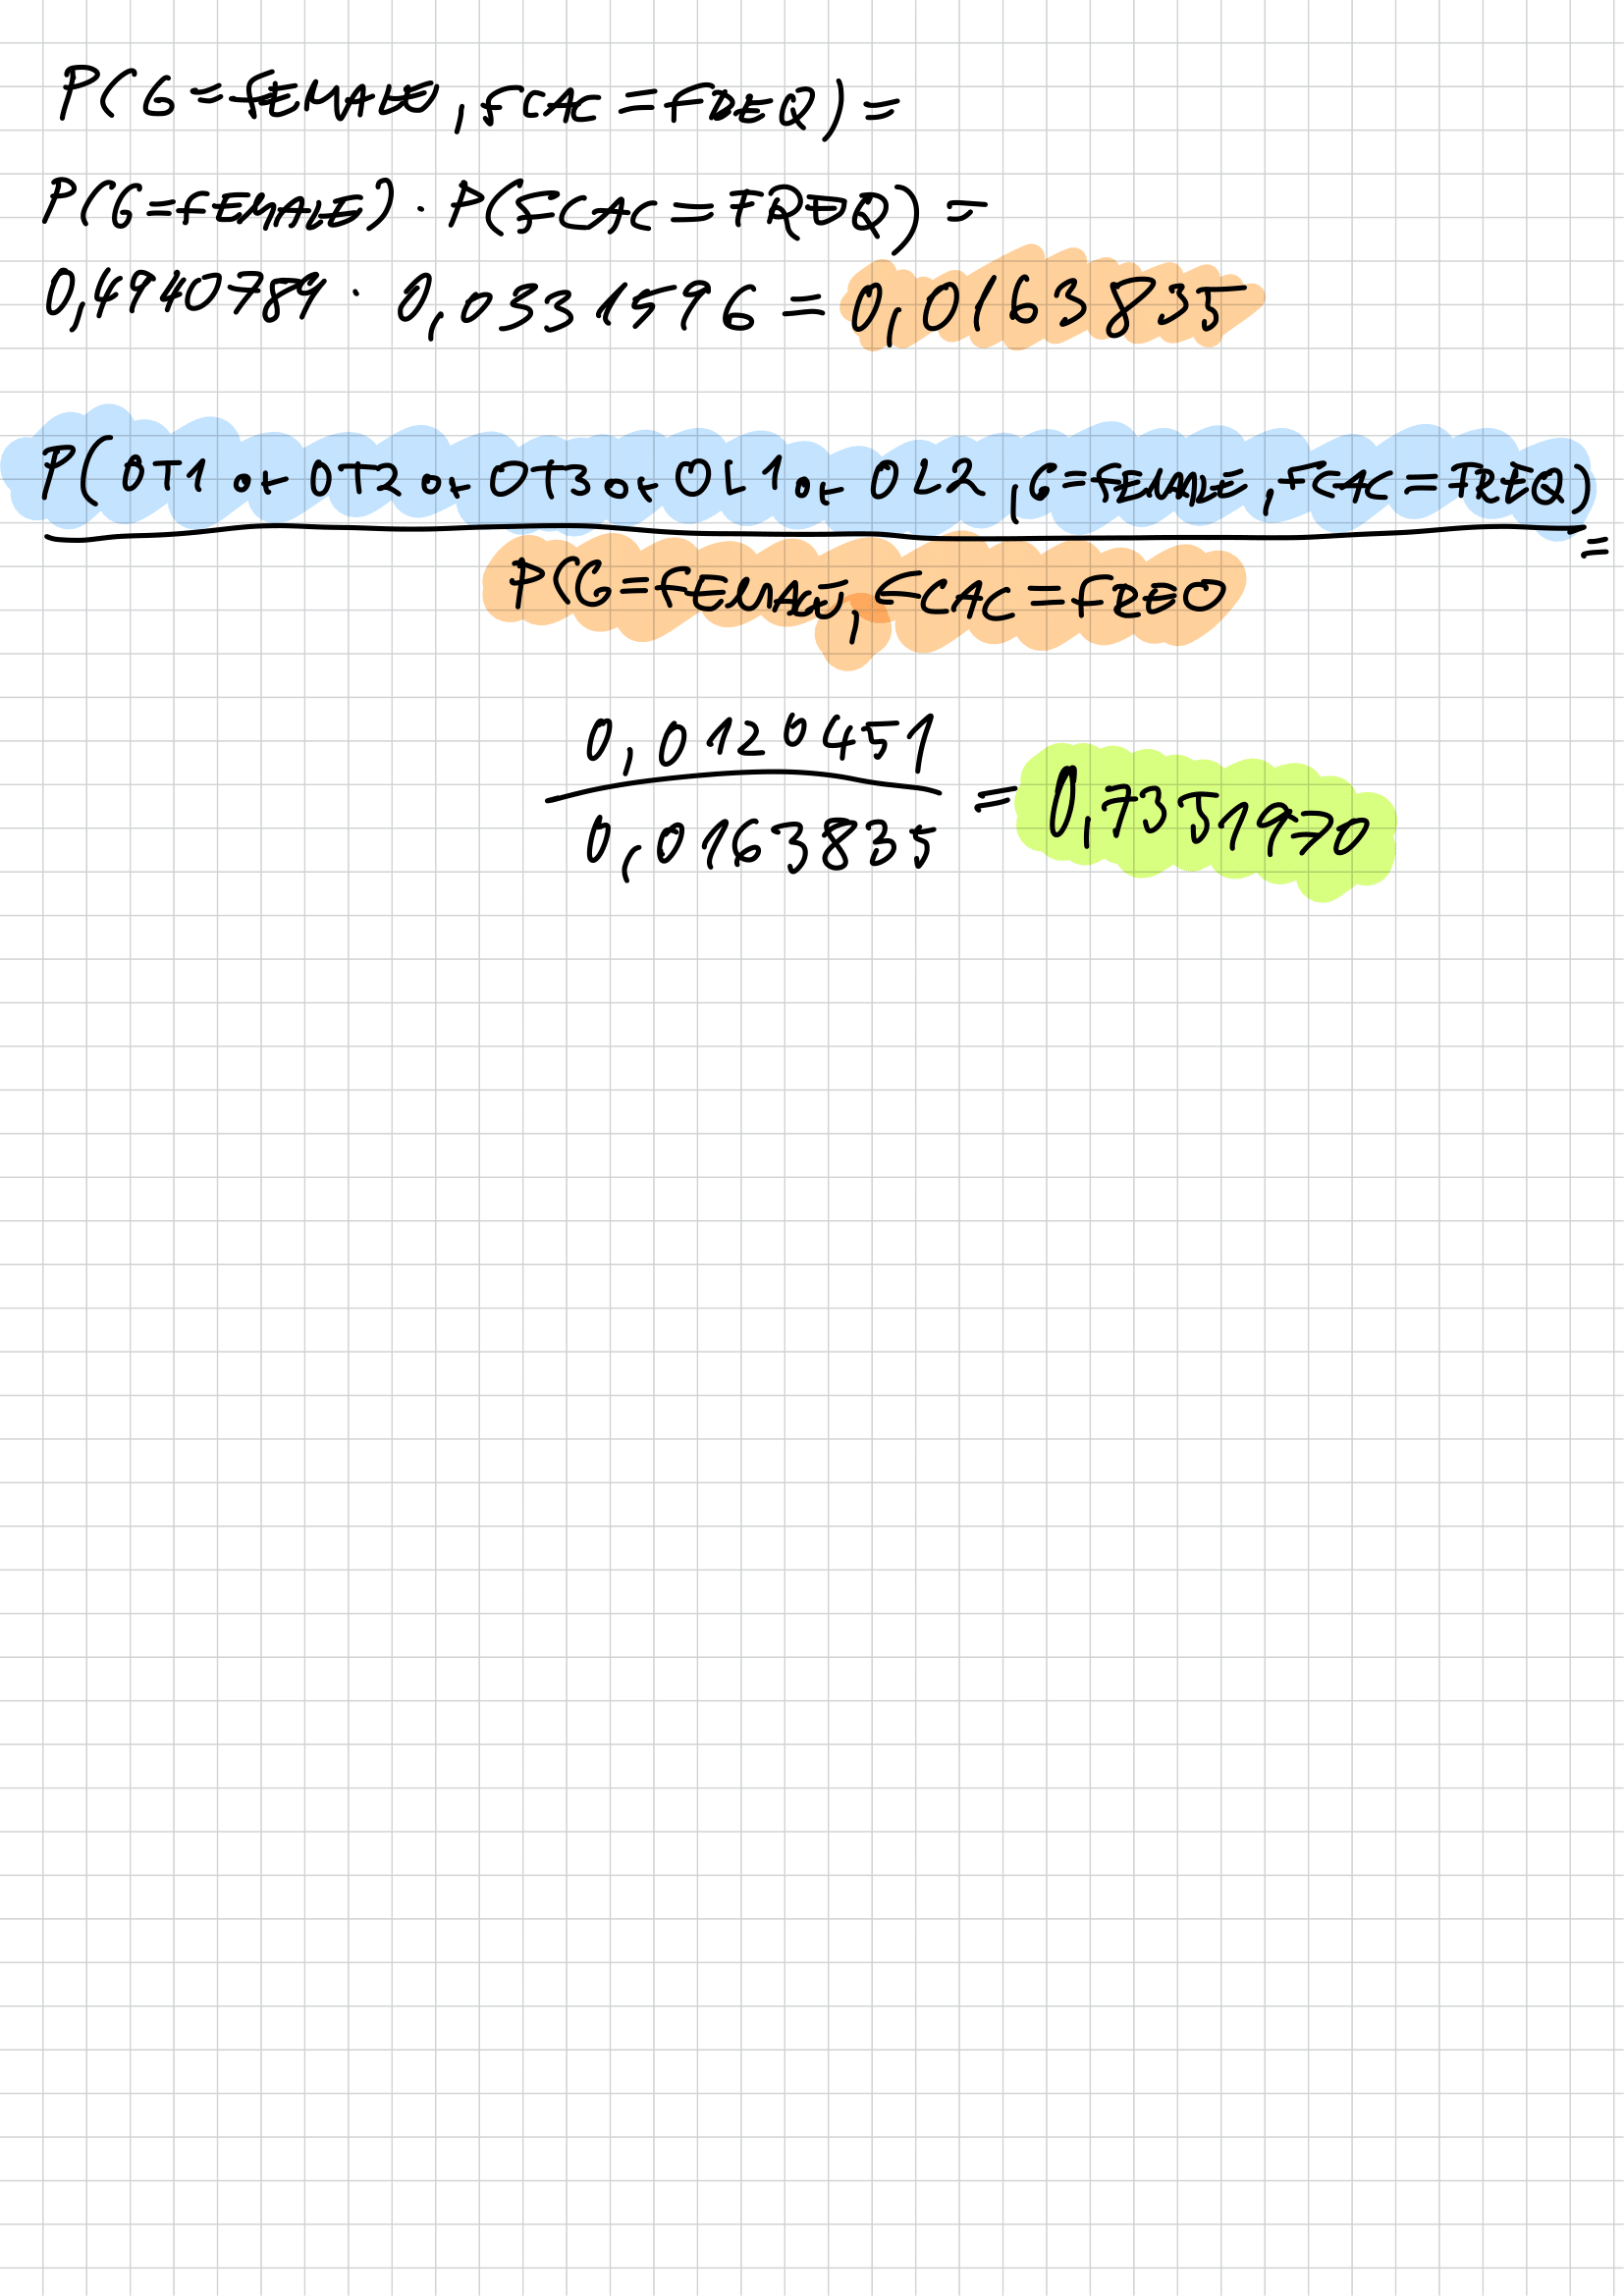 P(G=FEMALE, FCAC=FREQ)=
P(G=FEMALE) · P(FCAC=FREQ)=
0,4940789 · 0,0331596 = 0,0163835
P(OT1 or OT2 or OT3 or OL1 or OL2, G=FEMALE, FCAC=FREQ)
=
P(G=FEMALE, FCAC=FREQ
0,0120451
0,0163835
= 0,7351970